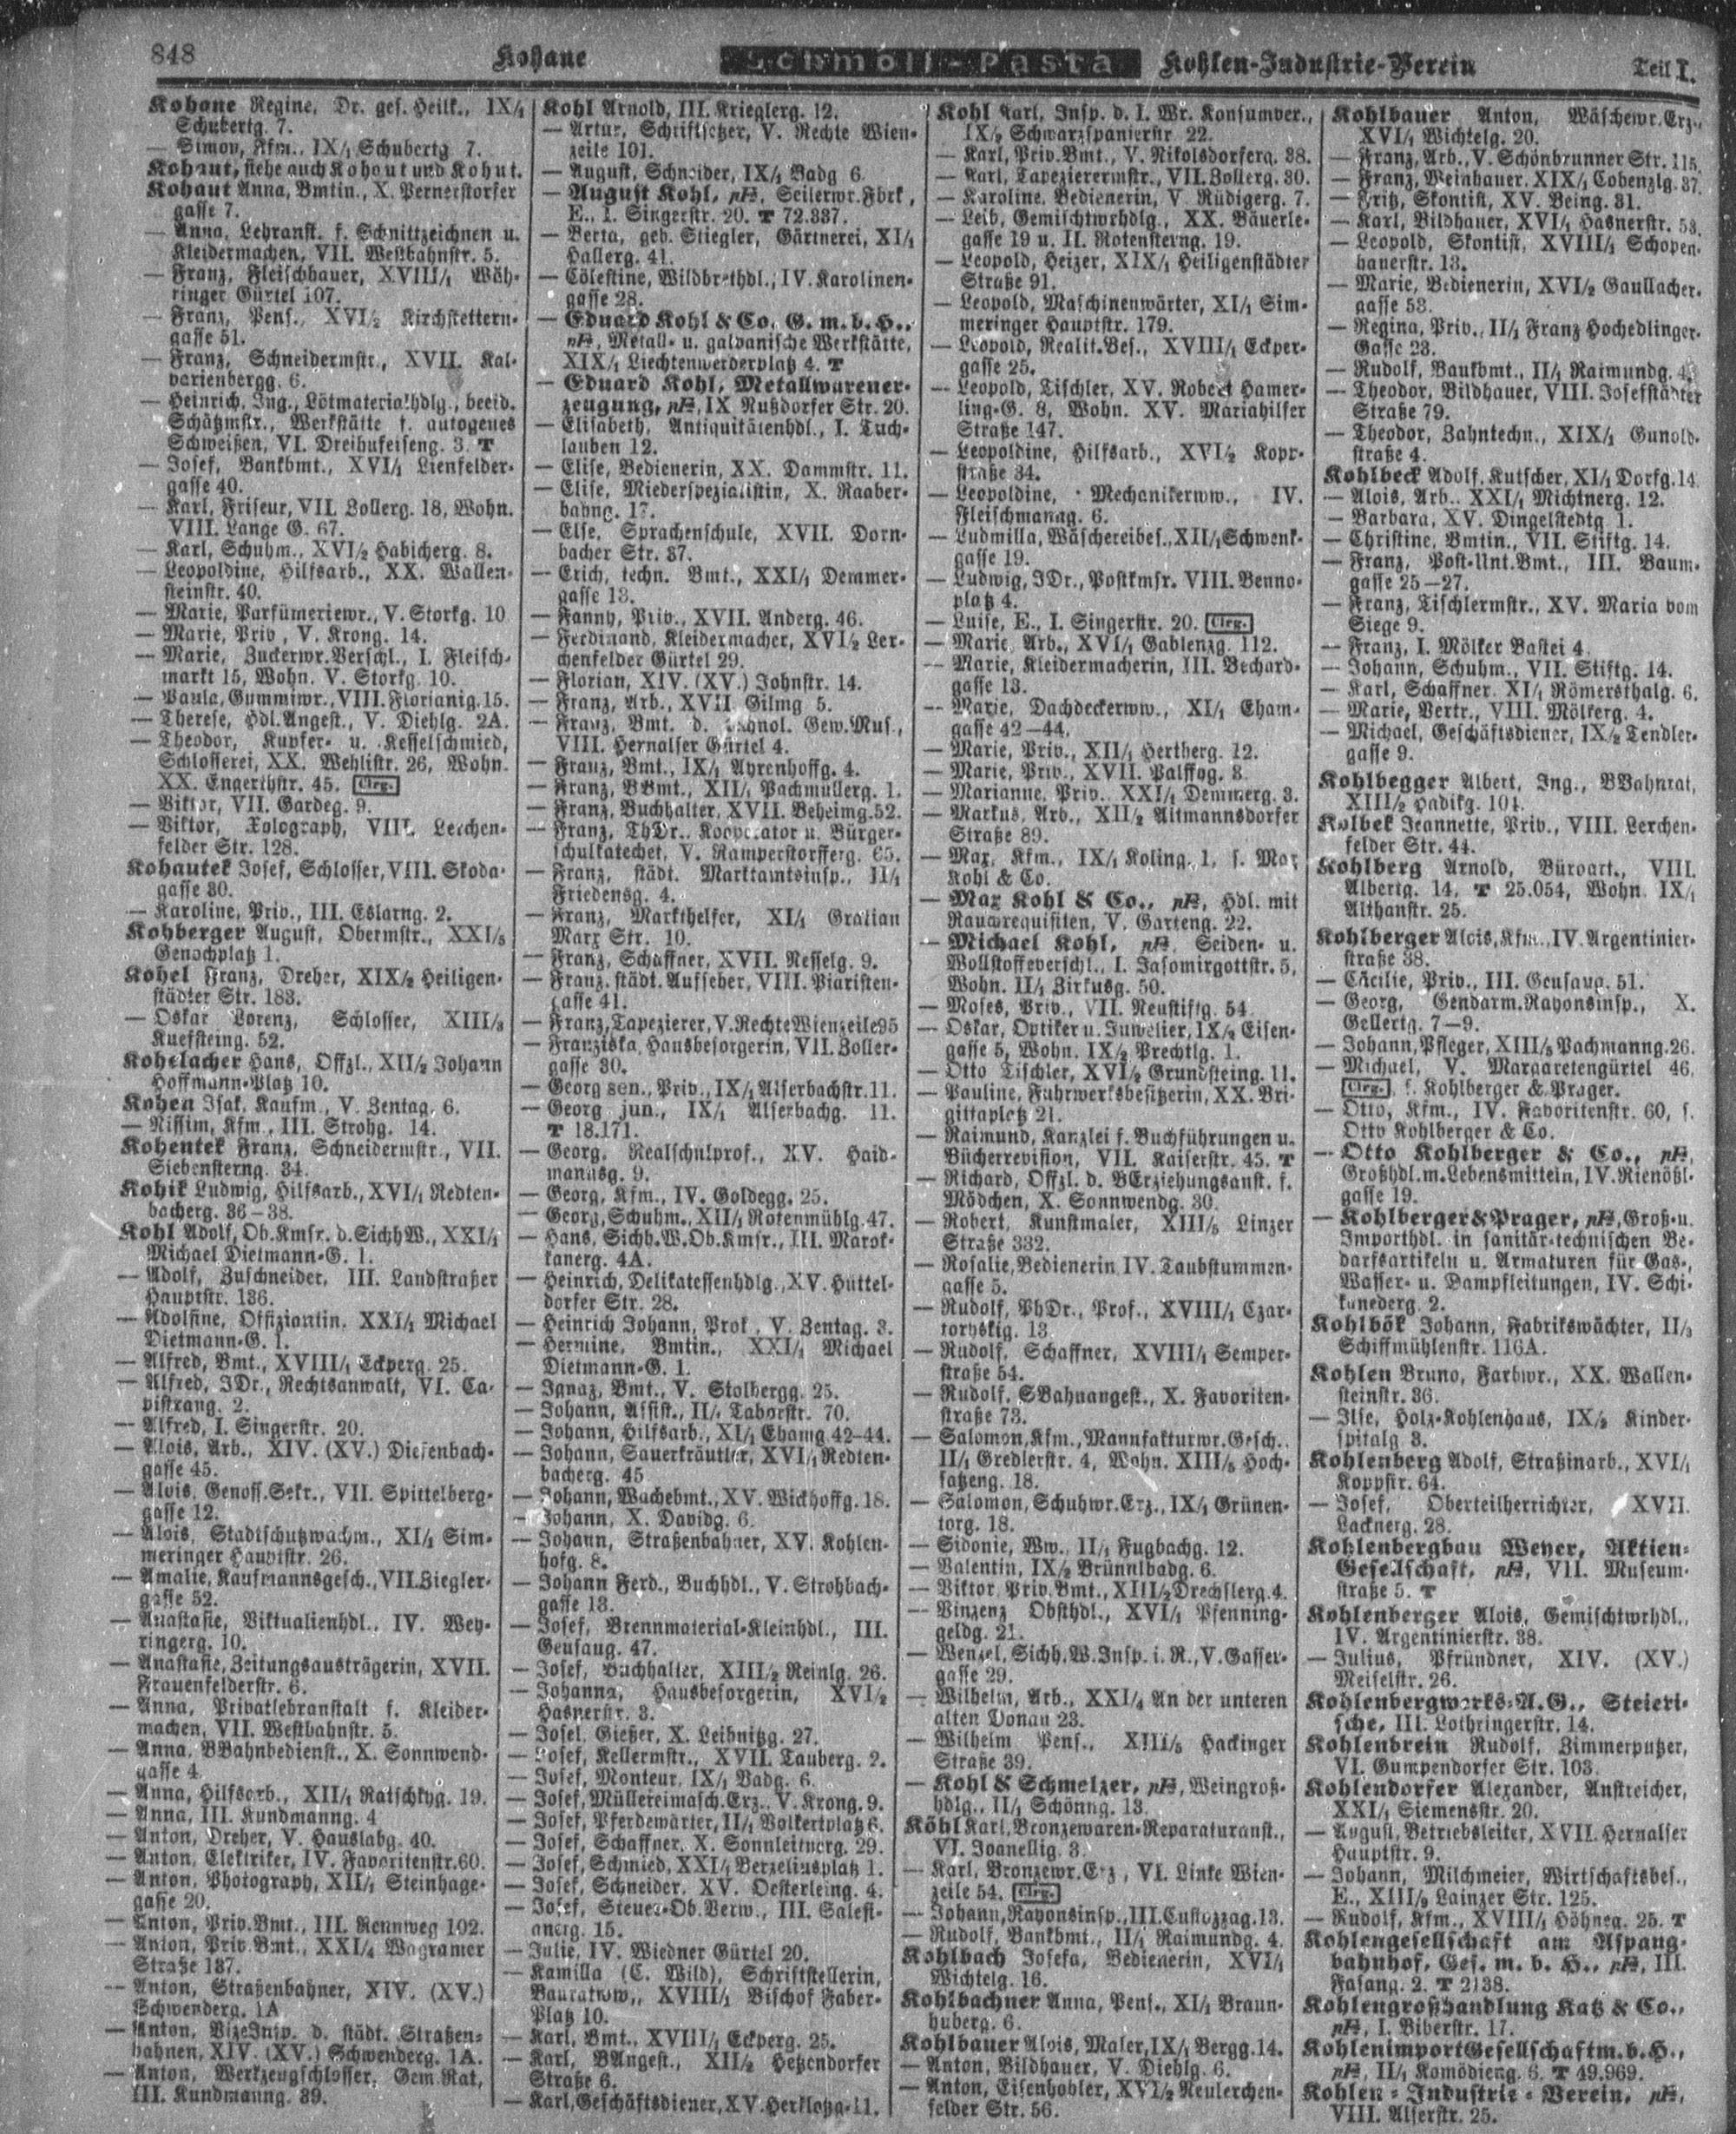 848 Kohane Schmoll-Pasta Kohlen-Industrie-Verein Teil I.
Kohane Regine, Dr. ges. Heilk., IX/1
Schubertg. 7.
— Simon, Kfm., IX/1 Schubertg 7.
Kohaut, siehe auch Kohout und Kohut.
Kohaut Anna, Bmtin., X. Pernerstorfer
gasse 7.
— Anna, Lehranst. f. Schnittzeichnen u.
Kleidermachen, VII. Westbahnstr. 5.
— Franz, Fleischhauer, XVIII/1 Wäh-
ringer Gürtel 107.
— Franz, Pens., XVI/2 Kirchstettern-
gasse 51.
— Franz, Schneidermstr., XVII. Kal-
varienbergg. 6.
— Heinrich, Ing., Lötmaterialhdlg., beeid.
Schätzmstr., Werkstätte f. autogenes
Schweißen, VI. Dreihufeiseng. 3. T
— Josef, Bankbmt., XVI/1 Lienfelder-
gasse 40.
— Karl, Friseur, VII. Zollerg. 18, Wohn.
VIII. Lange G. 67.
— Karl, Schuhm., XVI/2 Habicherg. 8.
— Leopoldine, Hilfsarb., XX. Wallen-
steinstr. 40.
— Marie, Parfümeriewr., V. Storkg. 10
— Marie, Priv., V. Krong. 14.
— Marie, Zuckerwr.Verschl., I. Fleisch-
markt 15, Wohn. V. Storkg. 10.
— Paula, Gummiwr., VIII. Florianig. 15.
— Therese, Hdl.Angest., V. Diehlg. 2A.
— Theodor, Kupfer- u. Kesselschmied,
Schlosserei, XX. Wehlistr. 26, Wohn.
XX. Engerthstr. 45. Clrg.
— Viktor, VII. Gardeg. 9.
— Viktor, Xylograph, VIII. Lerchen-
felder Str. 128.
Kohautek Josef, Schlosser, VIII. Skoda-
gasse 30.
— Karoline, Priv., III. Eslarng. 2.
Kohberger August, Obermstr., XXI/5
Genochplatz 1.
Kohel Franz, Dreher, XIX/2 Heiligen-
städter Str. 183.
— Oskar Lorenz, Schlosser, XIII/3
Kuefsteing. 52.
Kohelacher Hans, Offzl., XII/2 Johann
Hoffmann-Platz 10.
Kohen Isak, Kaufm., V. Zentag. 6.
— Nissim, Kfm., III. Strohg. 14.
Kohentek Franz, Schneidermstr., VII.
Siebensterng. 34.
Kohik Ludwig, Hilfsarb., XVI/1 Redten-
bacherg. 36–38.
Kohl Adolf, Ob.Kmsr. d. SichhW., XXI/1
Michael Dietmann-G. 1.
— Adolf, Zuschneider, III. Landstraßer
Hauptstr. 136.
— Adolfine, Offiziantin, XXI/1 Michael
Dietmann-G. 1.
— Alfred, Bmt., XVIII/1 Eckperg. 25.
— Alfred, JDr., Rechtsanwalt, VI. Ca-
pistrang. 2.
— Alfred, I. Singerstr. 20.
— Alois, Arb., XIV. (XV.) Diefenbach-
gasse 45.
— Alois, Genoss.Sekr., VII. Spittelberg-
gasse 12.
— Alois, Stadtschutzwachm., XI/1 Sim-
meringer Hauptstr. 26.
— Amalie, Kaufmannsgesch., VII. Ziegler-
gasse 52.
— Anastasie, Viktualienhdl., IV. Wey-
ringerg. 10.
— Anastasie, Zeitungsausträgerin, XVII.
Frauenfelderstr. 6.
— Anna, Privatlehranstalt f. Kleider-
machen, VII. Westbahnstr. 5.
— Anna, BBahnbedienst., X. Sonnwend-
gasse 4.
— Anna, Hilfsarb., XII/1 Ratschkyg. 19.
— Anna, III. Kundmanng. 4
— Anton, Dreher, V. Hauslabg. 40.
— Anton, Elektriker, IV. Favoritenstr. 60.
— Anton, Photograph, XII/1 Steinhage-
gasse 20.
— Anton, Priv.Bmt., III. Rennweg 102.
— Anton, Priv.Bmt., XXI/4 Wagramer
Straße 137.
— Anton, Straßenbahner, XIV. (XV.)
Schwenderg. 1A
— Anton, VizeInsp. d. städt. Straßen-
bahnen, XIV. (XV.) Schwenderg. 1A.
— Anton, Werkzeugschlosser, Gem.Rat,
III. Kundmanng. 39.
Kohl Arnold, III. Krieglerg. 12.
— Artur, Schriftsetzer, V. Rechte Wien-
zeile 101.
— August, Schneider, IX/1 Badg 6.
— August Kohl, pH, Seilerwr.Fbrk,
E., I. Singerstr. 20. T 72.337.
— Berta, geb. Stiegler, Gärtnerei, XI/1
Hallerg. 41.
— Cölestine, Wildbrethdl., IV. Karolinen-
gasse 28.
— Eduard Kohl & Co. G. m. b. H.,
pH, Metall- u. galvanische Werkstätte,
XIX/1 Liechtenwerderplatz 4. T
— Eduard Kohl, Metallwarener-
zeugung, pH, IX Nußdorfer Str. 20.
— Elisabeth, Antiquitätenhdl., I. Tuch-
lauben 12.
— Elise, Bedienerin, XX. Dammstr. 11.
— Elise, Miederspezialistin, X. Raaber-
bahng. 17.
— Else, Sprachenschule, XVII. Dorn-
bacher Str. 37.
— Erich, techn. Bmt., XXI/1 Demmer-
gasse 13.
— Fanny, Priv., XVII. Anderg. 46.
— Ferdinand, Kleidermacher, XVI/2 Ler-
chenfelder Gürtel 29.
— Florian, XIV. (XV.) Johnstr. 14.
— Franz, Arb., XVII. Gilmg 5.
— Franz, Bmt. d. technol. Gew.Mus.,
VIII. Hernalser Gürtel 4.
— Franz, Bmt., IX/1 Ayrenhoffg. 4.
— Franz, BBmt., XII/1 Pachmüllerg. 1.
— Franz, Buchhalter, XVII. Beheimg. 52.
— Franz, ThDr., Kooperator u. Bürger-
schulkatechet, V. Ramperstorfferg. 65.
— Franz, städt. Marktamtsinsp., II/1
Friedensg. 4.
— Franz, Markthelfer, XI/1 Gratian
Marx Str. 10.
— Franz, Schaffner, XVII. Nesselg. 9.
— Franz, städt. Aufseher, VIII. Piaristen-
gasse 41.
— Franz, Tapezierer, V. Rechte Wienzeile 95
— Franziska, Hausbesorgerin, VII. Zoller-
gasse 30.
— Georg sen., Priv., IX/1 Alserbachstr. 11.
— Georg jun., IX/1 Alserbachg. 11.
T 18.171.
— Georg, Realschulprof., XV. Haid-
mannsg. 9.
— Georg, Kfm., IV. Goldegg. 25.
— Georg, Schuhm., XII/1 Rotenmühlg. 47.
— Hans, Sichh.W.Ob.Kmsr., III. Marok-
kanerg. 4A.
— Heinrich, Delikatessenhdlg., XV. Hüttel-
dorfer Str. 28.
— Heinrich Johann, Prok., V. Zentag. 3.
— Hermine, Bmtin., XXI/1 Michael
Dietmann-G. 1.
— Ignaz, Bmt., V. Stolbergg. 25.
— Johann, Assist., II/1 Taborstr. 70.
— Johann, Hilfsarb., XI/1 Ehamg. 42–44.
— Johann, Sauerkräutler, XVI/1 Redten-
bacherg. 45
— Johann, Wachebmt., XV. Wickhoffg. 18.
— Johann, X. Davidg. 6.
— Johann, Straßenbahner, XV. Kohlen-
hofg. 8.
— Johann Ferd., Buchhdl., V. Strohbach-
gasse 13.
— Josef, Brennmaterial-Kleinhdl., III.
Geusaug. 47.
— Josef, Buchhalter, XIII/2 Reinlg. 26.
— Johanna, Hausbesorgerin, XVI/2
Hasnerstr. 3.
— Josef, Gießer, X. Leibnitzg. 27.
— Josef, Kellermstr., XVII. Tauberg. 2.
— Josef, Monteur, IX/1 Badg. 6.
— Josef, Müllereimasch.Erz., V. Krong. 9.
— Josef, Pferdewärter, II/1 Volkertplatz 6.
— Josef, Schaffner, X. Sonnleitnerg. 29.
— Josef, Schmied, XXI/4 Berzeliusplatz 1.
— Josef, Schneider, XV. Oesterleing. 4.
— Josef, Steuer-Ob.Verw., III. Salesi-
anerg. 15.
— Julie, IV. Wiedner Gürtel 20.
— Kamilla (C. Wild), Schriftstellerin,
Bauratww., XVIII/1 Bischof Faber-
Platz 10.
— Karl, Bmt., XVIII/1 Eckperg. 25.
— Karl, BAngest., XII/2 Hetzendorfer
Straße 6.
— Karl, Geschäftsdiener, XV. Herklotzg. 11.
Kohl Karl, Insp. d. I. Wr. Konsumver.,
IX/2 Schwarzspanierstr 22.
— Karl, Priv.Bmt., V. Nikolsdorferg. 38.
— Karl, Tapezierermstr., VII. Zollerg. 30.
— Karoline, Bedienerin, V. Rüdigerg. 7.
— Leib, Gemischtwrhdlg., XX. Bäuerle-
gasse 19 u. II. Rotensterng. 19.
— Leopold, Heizer, XIX/1 Heiligenstädter
Straße 91.
— Leopold, Maschinenwärter, XI/1 Sim-
meringer Hauptstr. 179.
— Leopold, Realit.Bes., XVIII/1 Eckper-
gasse 25.
— Leopold, Tischler, XV. Robert Hamer-
ling-G. 8, Wohn. XV. Mariahilfer
Straße 147.
— Leopoldine, Hilfsarb., XVI/2 Kopr-
straße 34.
— Leopoldine, Mechanikerww., IV.
Fleischmanng. 6.
— Ludmilla, Wäschereibes., XII/1 Schwenk-
gasse 19.
— Ludwig, JDr., Postkmsr. VIII. Benno-
platz 4.
— Luise, E., I. Singerstr. 20. Clrg.
— Marie, Arb., XVI/1 Gablenzg. 112.
— Marie, Kleidermacherin, III. Bechard-
gasse 13.
— Marie, Dachdeckerww., XI/1 Eham-
gasse 42–44.
— Marie, Priv., XII/1 Hertherg. 12.
— Marie, Priv., XVII. Palffyg. 8.
— Marianne, Priv., XXI/1 Demmerg. 3.
— Markus, Arb., XII/2 Altmannsdorfer
Straße 89.
— Max, Kfm., IX/1 Koling. 1, s. Max
Kohl & Co.
— Max Kohl & Co., pH, Hdl. mit
Rauchrequisiten, V. Garteng. 22.
— Michael Kohl, pH, Seiden- u.
Wollstoffeverschl., I. Jasomirgottstr. 5,
Wohn. II/1 Zirkusg. 50.
— Moses, Priv., VII. Neustiftg. 54
— Oskar, Optiker u. Juwelier, IX/2 Eisen-
gasse 5, Wohn. IX/2 Prechtlg. 1.
— Otto Tischler, XVI/2 Grundsteing. 11.
— Pauline, Fuhrwerksbesitzerin, XX. Bri-
gittaplatz 21.
— Raimund, Kanzlei f. Buchführungen u.
Bücherrevision, VII. Kaiserstr. 45. T
— Richard, Offzl. d. BErziehungsanst. f.
Mädchen, X. Sonnwendg. 30.
— Robert, Kunstmaler, XIII/5 Linzer
Straße 332.
— Rosalie, Bedienerin IV. Taubstummen-
gasse 5.
— Rudolf, PhDr., Prof., XVIII/1 Czar-
toryskig. 13
— Rudolf, Schaffner, XVIII/1 Semper-
straße 54.
— Rudolf, SBahnangest., X. Favoriten-
straße 73.
— Salomon, Kfm., Manufakturwr.Gesch.,
II/1 Gredlerstr. 4, Wohn. XIII/5 Hoch-
satzeng. 18.
— Salomon, Schuhwr.Erz., IX/1 Grünen-
torg. 18.
— Sidonie, Ww., II/1 Fugbachg. 12.
— Valentin, IX/2 Brünnlbadg. 6.
— Viktor, Priv.Bmt., XIII/2 Drechslerg. 4.
— Vinzenz Obsthdl., XVI/1 Pfenning-
geldg. 21.
— Wenzel, Sichh.W.Insp. i. R., V. Gasser-
gasse 29.
— Wilhelm, Arb., XXI/4 An der unteren
alten Donau 23.
— Wilhelm Pens., XIII/5 Hackinger
Straße 39.
— Kohl & Schmelzer, pH, Weingroß-
hdlg., II/1 Schönng. 13.
Köhl Karl, Bronzewaren-Reparaturanst.,
VI. Joanellig. 3.
— Karl, Bronzewr.Erz., VI. Linke Wien-
zeile 54. Clrg.
— Johann, Rayonsinsp., III. Custozzag. 13.
— Rudolf, Bankbmt., II/1 Raimundg. 4.
Kohlbach Josefa, Bedienerin, XVI/1
Wichtelg. 16.
Kohlbachner Anna, Pens., XI/1 Braun-
huberg. 6.
Kohlbauer Alois, Maler, IX/1 Bergg. 14.
— Anton, Bildhauer, V. Diehlg. 6.
— Anton, Eisenhobler, XVI/2 Neulerchen-
felder Str. 56.
Kohlbauer Anton, Wäschewr.Erz.,
XVI/1 Wichtelg. 20.
— Franz, Arb., V. Schönbrunner Str. 115.
— Franz, Weinhauer, XIX/1 Cobenzlg. 37.
— Fritz, Skontist, XV. Being. 31.
— Karl, Bildhauer, XVI/1 Hasnerstr. 53.
— Leopold, Skontist, XVIII/1 Schopen-
hauerstr. 13.
— Marie, Bedienerin, XVI/2 Gaullacher-
gasse 53.
— Regina, Priv., II/1 Franz Hochedlinger-
Gasse 23.
— Rudolf, Bankbmt., II/1 Raimundg. 4.
— Theodor, Bildhauer, VIII. Josefstädter
Straße 79.
— Theodor, Zahntechn., XIX/1 Gunold-
straße 4.
Kohlbeck Adolf, Kutscher, XI/1 Dorfg. 14
— Alois, Arb., XXI/1 Michtnerg. 12.
— Barbara, XV. Dingelstedtg 1.
— Christine, Bmtin., VII. Stiftg. 14.
— Franz, Post-Unt.Bmt., III. Baum-
gasse 25–27.
— Franz, Tischlermstr., XV. Maria vom
Siege 9.
— Franz, I. Mölker Bastei 4.
— Johann, Schuhm., VII. Stiftg. 14.
— Karl, Schaffner, XI/1 Römersthalg. 6.
— Marie, Vertr., VIII. Mölkerg. 4.
— Michael, Geschäftsdiener, IX/2 Tendler-
gasse 9.
Kohlbegger Albert, Ing., BBahnrat,
XIII/2 Hadikg. 101.
Kolbek Jeannette, Priv., VIII. Lerchen-
felder Str. 44.
Kohlberg Arnold, Büroart., VIII.
Albertg. 14, T 25.054, Wohn. IX/1
Althanstr. 25.
Kohlberger Alois, Kfm., IV. Argentinier-
straße 38.
— Cäcilie, Priv., III. Geusaug. 51.
— Georg, Gendarm.Rayonsinsp., X.
Gellertg. 7–9.
— Johann, Pfleger, XIII/5 Pachmanng. 26.
— Michael, V. Margaretengürtel 46,
Clrg., s. Kohlberger & Prager.
— Otto, Kfm., IV. Favoritenstr. 60, s.
Otto Kohlberger & Co.
— Otto Kohlberger & Co., pH,
Großhdl. m. Lebensmitteln, IV. Rienößl-
gasse 19.
— Kohlberger & Prager, pH, Groß- u.
Importhdl. in sanitär-technischen Be-
darfsartikeln u. Armaturen für Gas-,
Wasser- u. Dampfleitungen, IV. Schi-
kanederg. 2.
Kohlbök Johann, Fabrikswächter, II/3
Schiffmühlenstr. 116A.
Kohlen Bruno, Farbwr., XX. Wallen-
steinstr. 36.
— Ilse, Holz-Kohlenhaus, IX/2 Kinder-
spitalg. 3.
Kohlenberg Adolf, Straßinarb., XVI/1
Koppstr. 64.
— Josef, Oberteilherrichter, XVII.
Lacknerg. 28.
Kohlenbergbau Weyer, Aktien-
Gesellschaft, pH, VII. Museum-
straße 5. T
Kohlenberger Alois, Gemischtwrhdl.,
IV. Argentinierstr. 38.
— Julius, Pfründner, XIV. (XV.)
Meiselstr. 26.
Kohlenbergwerks-A.G., Steieri-
sche, III. Lothringerstr. 14.
Kohlenbrein Rudolf, Zimmerputzer,
VI. Gumpendorfer Str. 103.
Kohlendorfer Alexander, Anstreicher,
XXI/1 Siemensstr. 20.
— August, Betriebsleiter, XVII. Hernalser
Hauptstr. 9.
— Johann, Milchmeier, Wirtschaftsbes.,
E., XIII/9 Lainzer Str. 125.
— Rudolf, Kfm., XVIII/1 Höhneg. 25. T
Kohlengesellschaft am Aspang-
bahnhof, Ges. m. b. H., pH, III.
Fasang. 2. T 2138.
Kohlengroßhandlung Katz & Co.,
pH, I. Biberstr. 17.
Kohlenimport Gesellschaft m. b. H.,
pH, II/1 Komödieng. 6. T 49.969.
Kohlen-Industrie-Verein, pH,
VIII. Alserstr. 25.